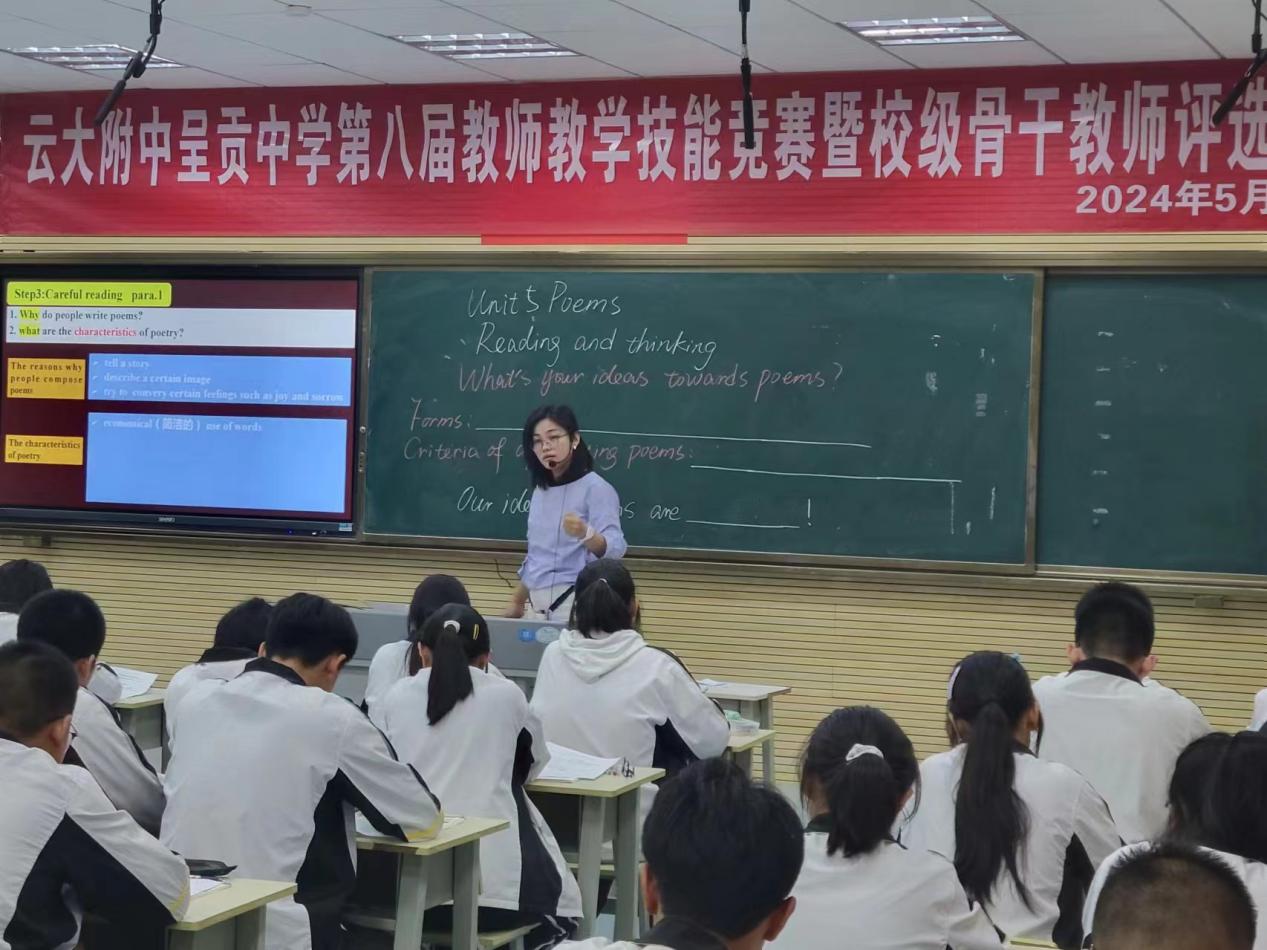 云大附中呈贡中学第八届教师教学技能竞赛暨校级骨干教师评选
2024年5月
Step3:Careful reading para.1
1. Why do people write poems?
2. what are the characteristics of poetry?
The reasons why
people compose
poems
tell a story
describe a certain image
try to convery certain feelings such as joy and sorrow
The characteristics
of poetry
economical（简洁的）use of words
Unit 5 Poems
Reading and thinking
What's your ideas towards poems?
Forms:
Criteria of ing poems:
Our are !